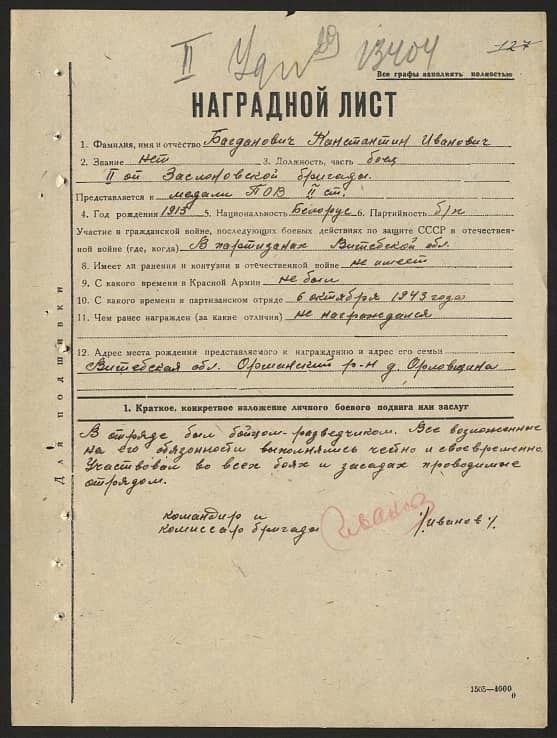 II 29 13404 127
Все графы наполнять полностью
НАГРАДНОЙ ЛИСТ
1. Фамилия, имя и отчество Багданович Канстантин Иванович
2. Звание нет 3. Должность, часть боец
II от Заслоновской бригады.
Представляется к медали ПОВ II ст.
4. Год рождения 1915 5. Национальность Белорус 6. Партийность б/п
Участие в гражданской войне, последующих боевых действиях по защите СССР и отечествен-
ной войне (где, когда) В партизанах Витебской обл.
8. Имеет ли ранения и контузии в отечественной войне не имеет
9. С какого времени в Красной Армии не был
10. С какого времени в партизанском отряде 6 октября 1943 года
11. Чем ранее награжден (за какие отличия) не награждался
12. Адрес места рождения представляемого к награждению и адрес его семьи
Витебская обл. Оршанский р-н д. Орловщина
Для подшивки
1. Краткое, конкретное изложение личного боевого подвига или заслуг
В отряде был бойцом-розведчиком. Все возложенные
на его обязонности выполнялись честно и своевременно.
Участвовал во всех боях и засадах проводимые
отрядом.
командир и
комиссар бригады Иванов /Иванов/
1505—4000
0